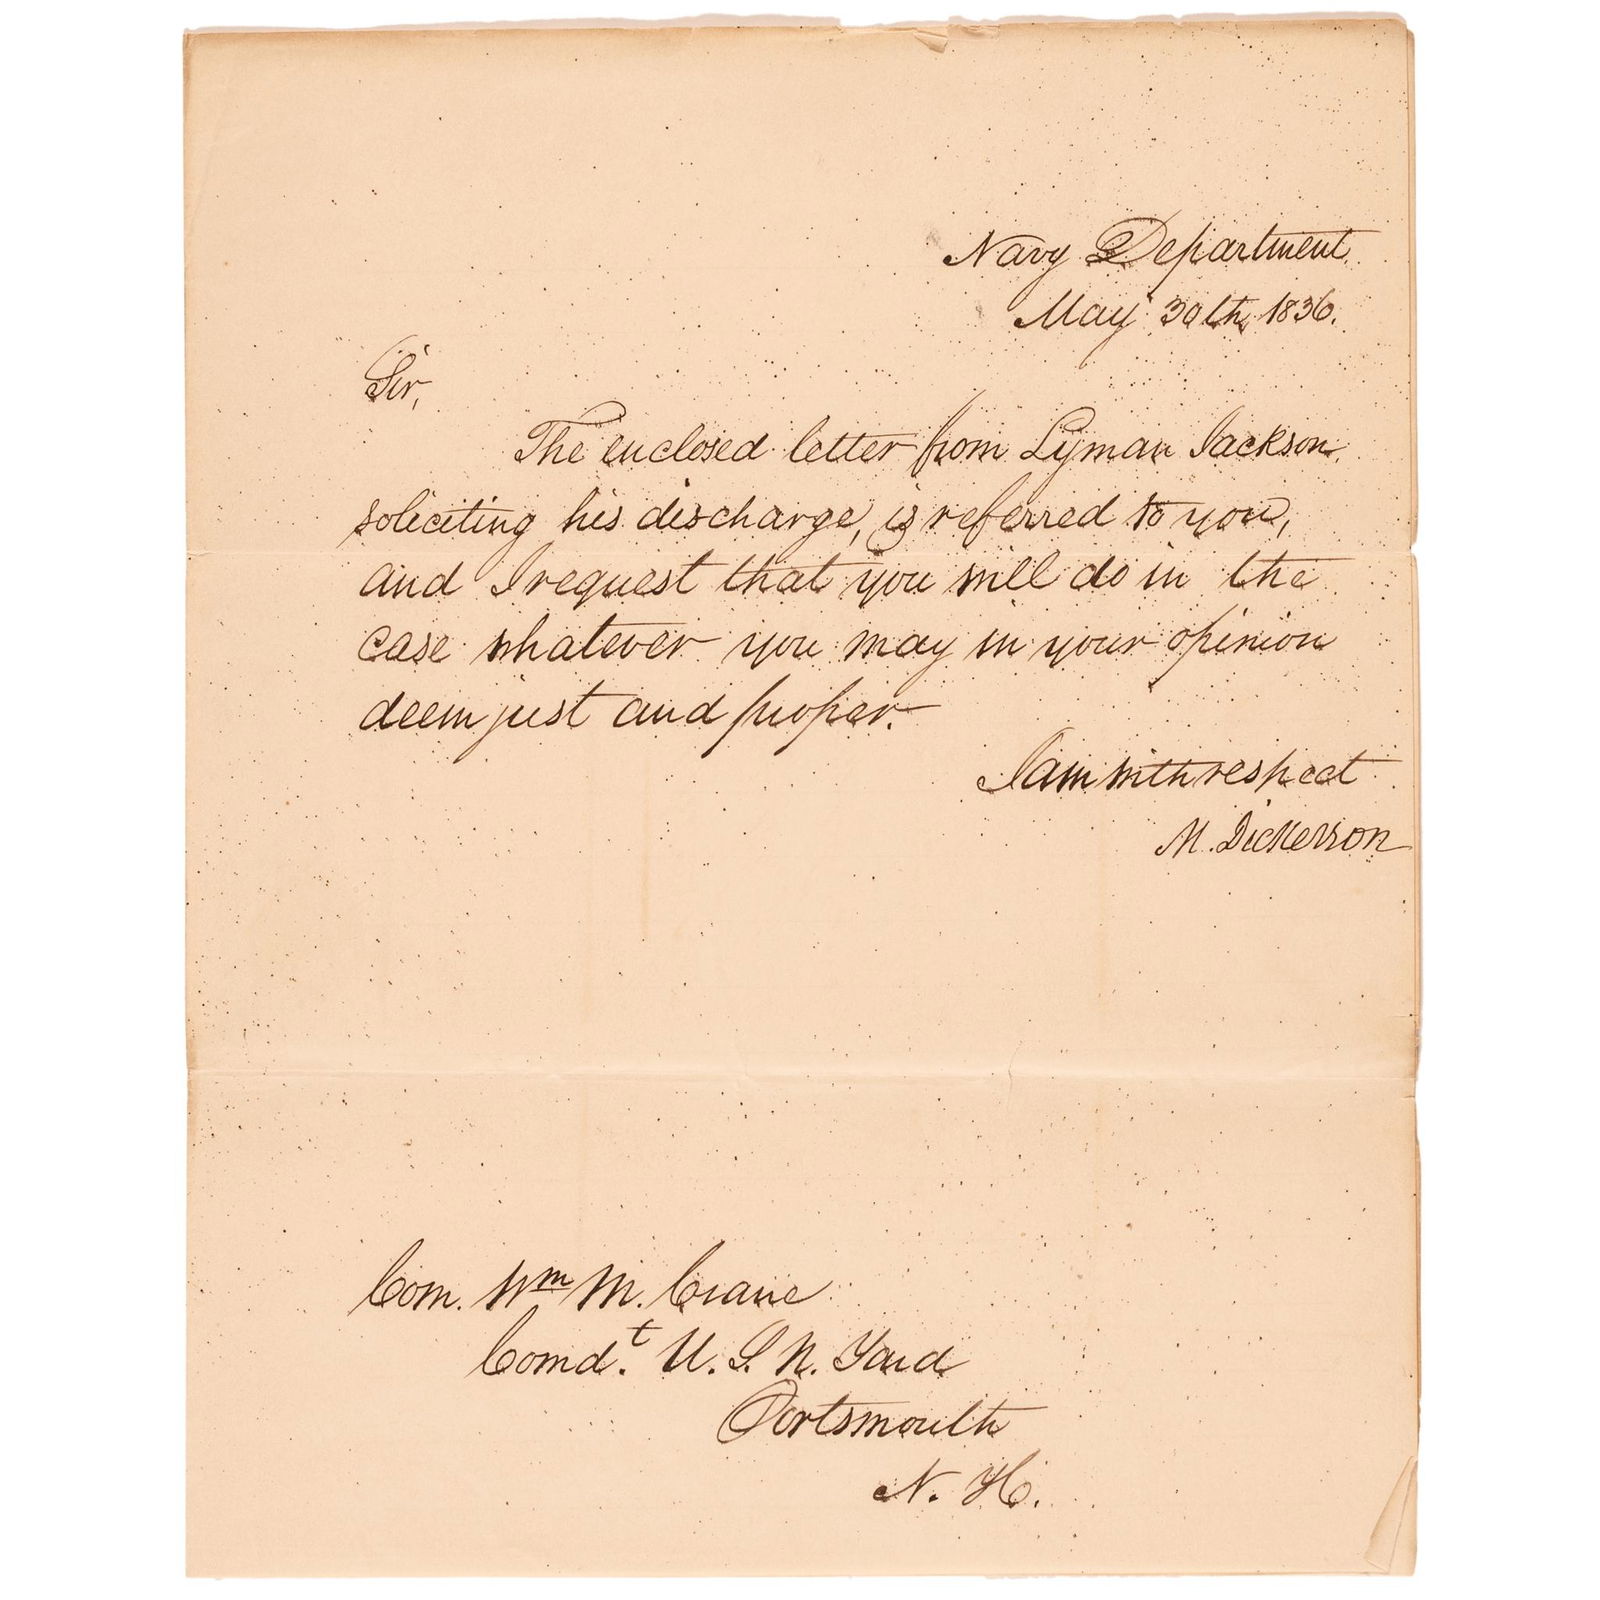 Navy Department
May 30th, 1836.
Sir,
The enclosed letter from Lyman Jackson
soliciting his discharge, is referred to you,
and I request that you will do in the
case whatever you may in your opinion
deem just and proper.
I am with respect
M. Dickerson
Com. Wm M. Crane
Comdt. U. S. N. Yard
Portsmouth
N. H.